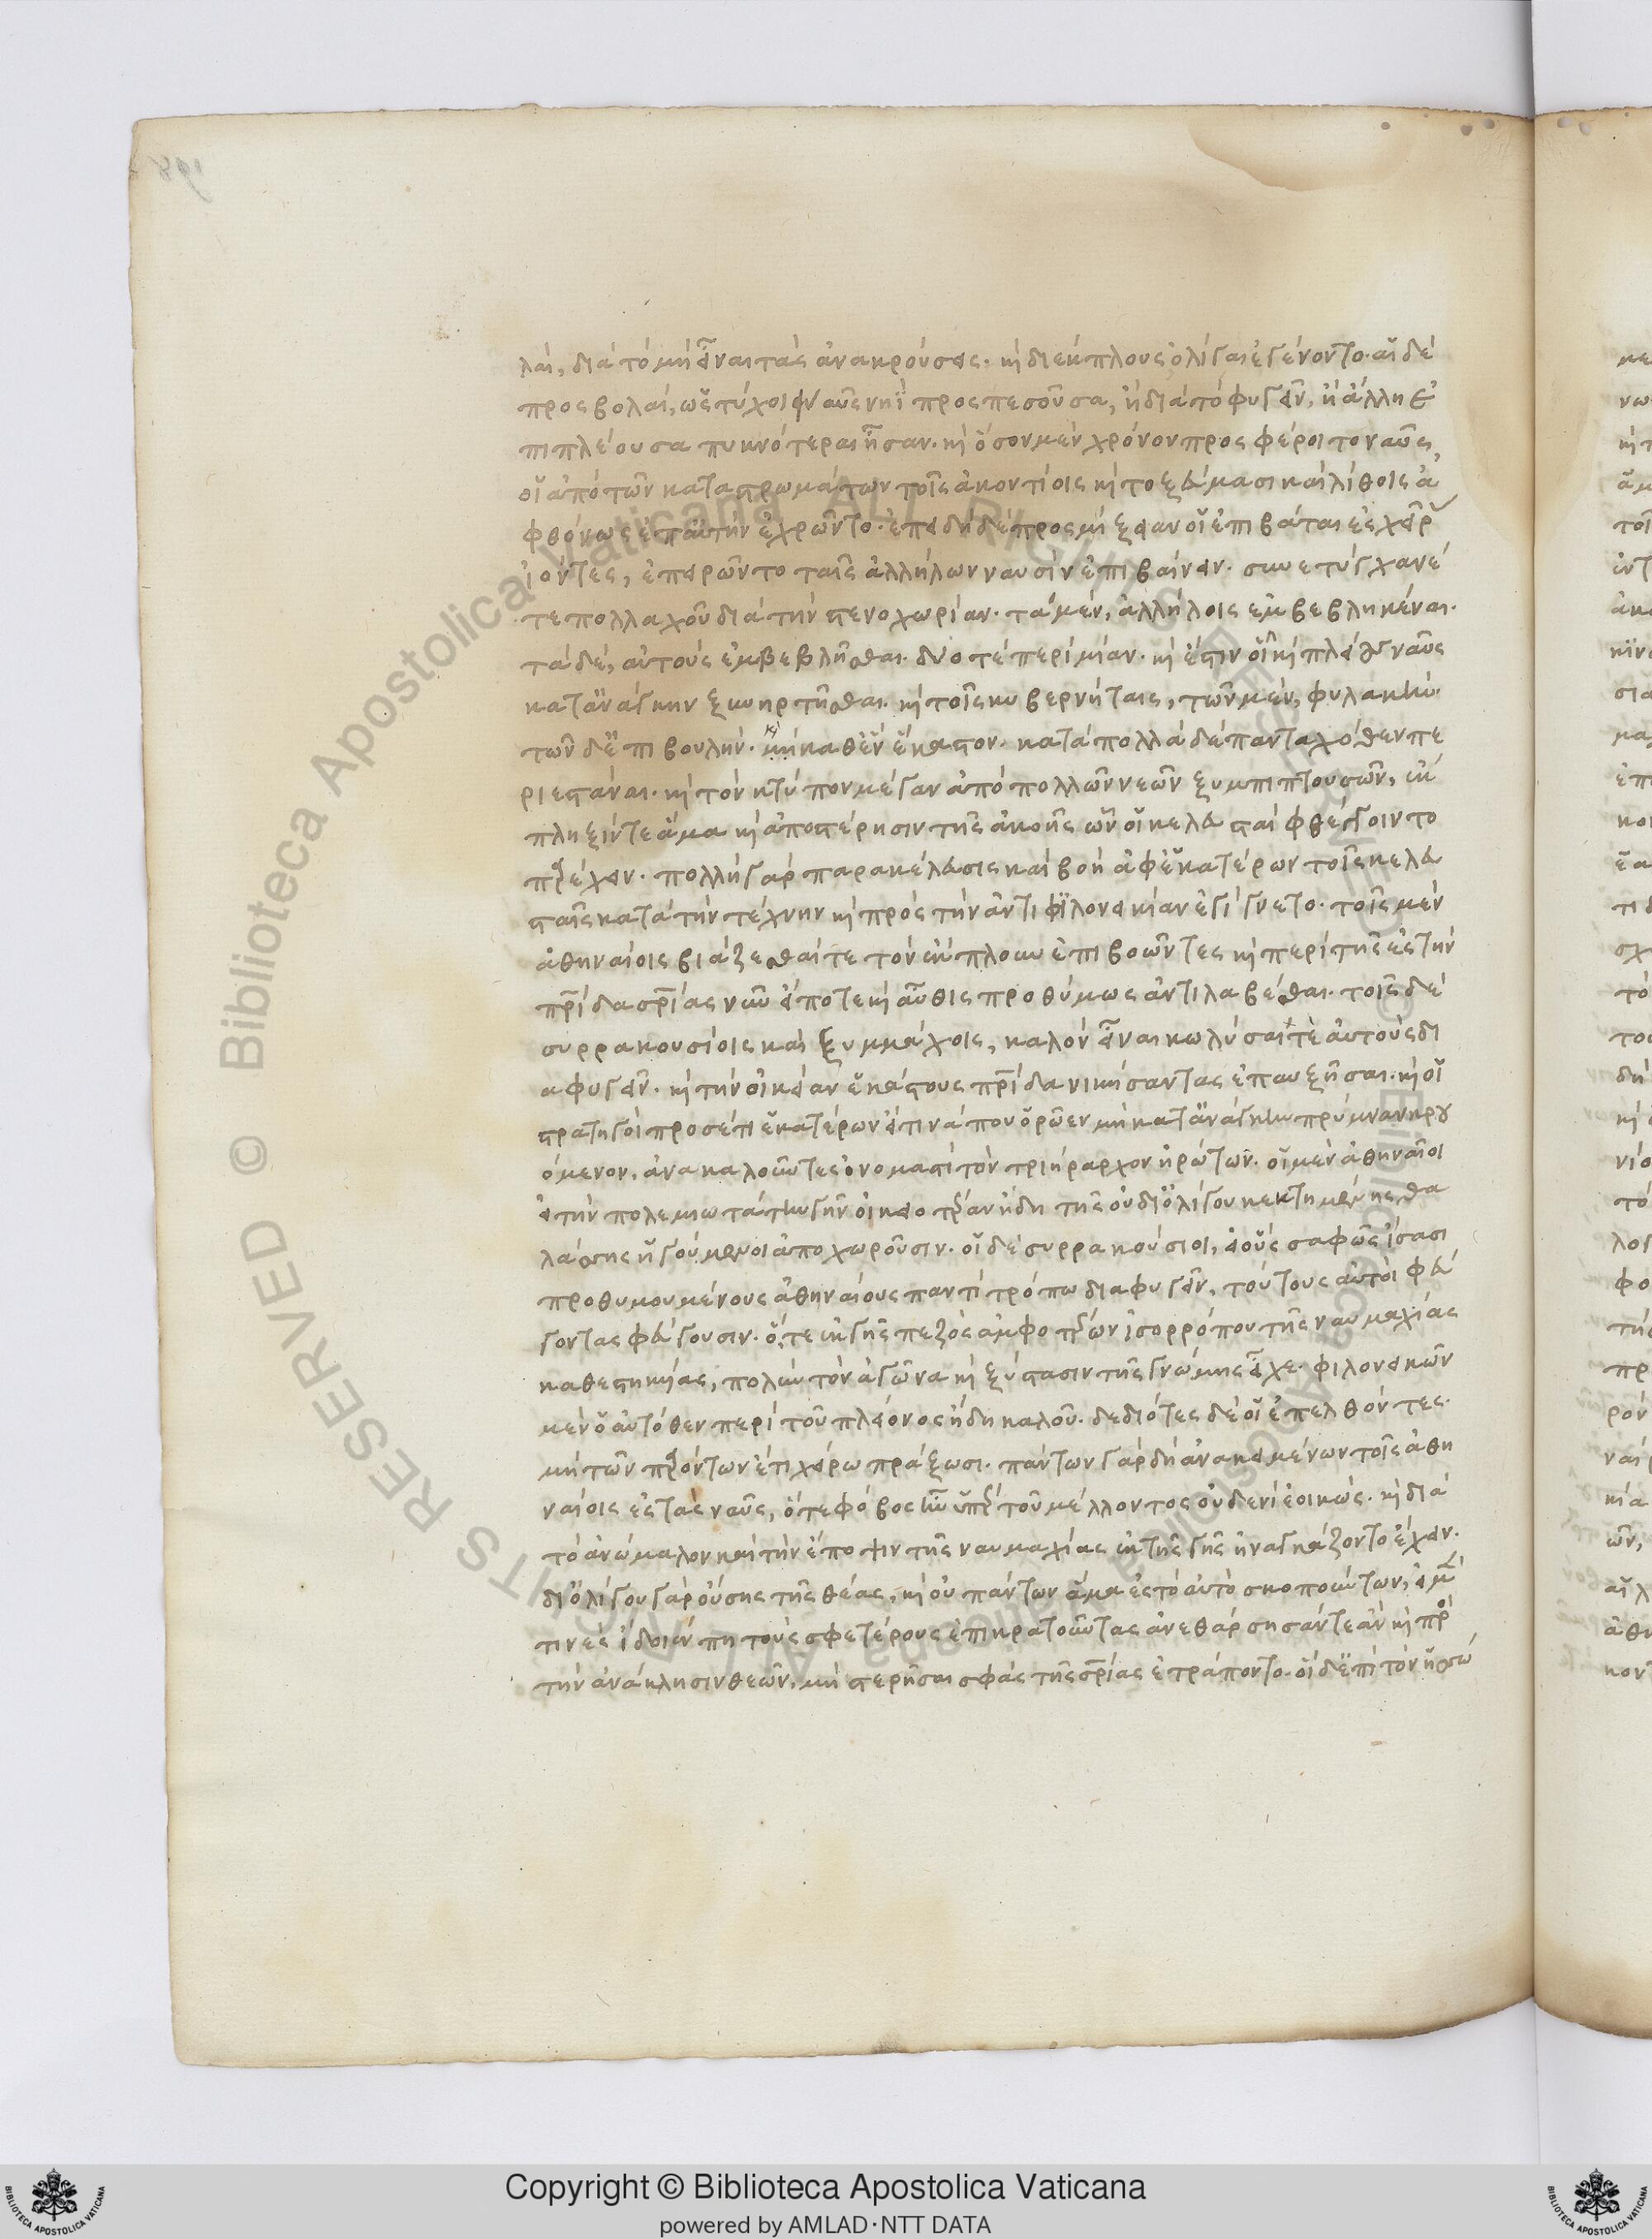 λαὶ, διὰ τὸ μὴ εἶναι τὰς ἀνακρούσεις. καὶ διέκπλους ὀλίγαι ἐγένοντο. αἱ δὲ
προσβολαὶ, ὡς τύχοι ναῦς νηῒ προσπεσοῦσα, ἢ διὰ τὸ φυγεῖν, ἢ ἄλλη ἐ
πιπλέουσα πυκνότεραι ἦσαν. καὶ ὅσον μὲν χρόνον προσφέροιτο ναῦς,
οἱ ἀπὸ τῶν καταστρωμάτων τοῖς ἀκοντίοις καὶ τοξεύμασι καὶ λίθοις ἀ
φθόνως ἐπ' αὐτὴν ἐχρῶντο. ἐπειδὴ δὲ προσμίξειαν οἱ ἐπιβάται ἐς χεῖρας
ἰόντες, ἐπειρῶντο ταῖς ἀλλήλων ναυσὶν ἐπιβαίνειν. συνετύγχανέ
τε πολλαχοῦ διὰ τὴν στενοχωρίαν. τὰ μὲν, ἀλλήλοις ἐμβεβληκέναι.
τὰ δὲ, αὐτοὺς ἐμβεβλῆσθαι. δύο τὲ περὶ μίαν. καὶ ἔστιν οἷ καὶ πλείους ναῦς
κατ' ἀνάγκην ξυνηρτῆσθαι. καὶ τοῖς κυβερνήταις, τῶν μὲν, φυλακὴν.
τῶν δ' ἐπιβουλήν. μὴ καθ' ἓν ἕκαστον. κατὰ πολλὰ δὲ πανταχόθεν πε
ριεστάναι. καὶ τὸν κτύπον μέγαν ἀπὸ πολλῶν νεῶν ξυμπιπτουσῶν, ἔκ
πληξίν τε ἅμα καὶ ἀποστέρησιν τῆς ἀκοῆς ὧν οἱ κελευσταὶ φθέγγοιντο
παρέχειν. πολλὴ γὰρ παρακέλευσις καὶ βοὴ ἀφ' ἑκατέρων τοῖς κελευ
σταῖς κατὰ τὴν τέχνην καὶ πρὸς τὴν αὐτίκα φιλονεικίαν ἐγίγνετο. τοῖς μὲν
ἀθηναίοις βιάζεσθαί τε τὸν ἔκπλουν ἐπιβοῶντες καὶ περὶ τῆς ἐς τὴν
πατρίδα σωτηρίας νῦν εἴποτε καὶ αὖθις προθύμως ἀντιλαβέσθαι. τοῖς δὲ
συρρακουσίοις καὶ ξυμμάχοις, καλὸν εἶναι κωλῦσαί τὲ αὐτοὺς δι
αφυγεῖν. καὶ τὴν οἰκείαν ἑκάστους πατρίδα νικήσαντας ἐπαυξῆσαι. καὶ οἱ
στρατηγοὶ προσέτι ἑκατέρων εἴ τινά που ὁρῶεν μὴ κατ' ἀνάγκην πρύμναν κρου
όμενον, ἀνακαλοῦντες ὀνομαστὶ τὸν τριήραρχον ἠρώτων. οἱ μὲν ἀθηναῖοι
εἰ τὴν πολεμιωτάτην γῆν οἰκειοτέραν ἤδη τῆς οὐ δι' ὀλίγου κεκτημένης θα
λάσσης ἡγούμενοι ἀποχωροῦσιν. οἱ δὲ συρρακούσιοι, εἰ οὓς σαφῶς ἴσασι
προθυμουμένους ἀθηναίους παντὶ τρόπω διαφυγεῖν, τούτους αὐτοὶ φεύ
γοντας φεύγουσιν. ὅ, τε ἐκ γῆς πεζὸς ἀμφοτέρων ἰσορρόπου τῆς ναυμαχίας
καθεστηκυίας, πολὺν τὸν ἀγῶνα καὶ ξύστασιν τῆς γνώμης εἶχε. φιλονεικῶν
μὲν ὁ αὐτόθεν περὶ τοῦ πλείονος ἤδη καλοῦ. δεδιότες δὲ οἱ ἐπελθόντες.
μὴ τῶν παρόντων ἔτι χείρω πράξωσι. πάντων γὰρ δὴ ἀνακειμένων τοῖς ἀθη
ναίοις ἐς τὰς ναῦς, ὅ τε φόβος ἦν ὑπὲρ τοῦ μέλλοντος οὐδενὶ ἐοικώς. καὶ διὰ
τὸ ἀνώμαλον καὶ τὴν ἔποψιν τῆς ναυμαχίας ἐκ τῆς γῆς ἠναγκάζοντο ἔχειν.
δι' ὀλίγου γὰρ οὔσης τῆς θέας, καὶ οὐ πάντων ἅμα ἐς τὸ αὐτὸ σκοπούντων, εἰ μὲν
τινὲς ἴδοιέν πη τοὺς σφετέρους ἐπικρατοῦντας ἀνεθάρσησάν τε ἂν καὶ πρὸς
τὴν ἀνάκλησιν θεῶν, μὴ στερῆσαι σφὰς τῆς σωτηρίας ἐτράποντο. οἱ δ' ἐπὶ τὸν ἡσσώ
Copyright © Biblioteca Apostolica Vaticana
powered by AMLAD·NTT DATA